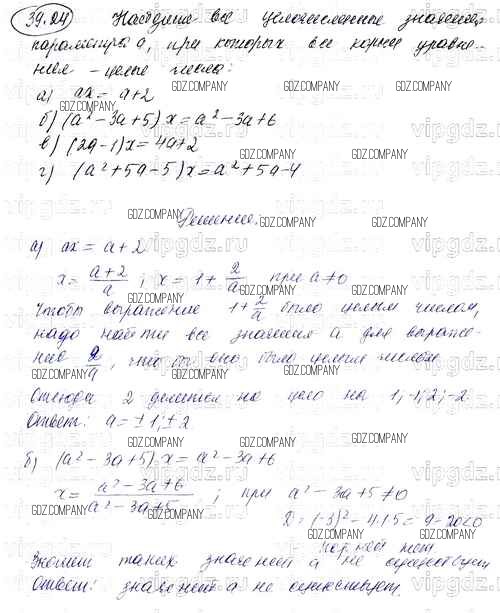 39.24 Найдите все целочисленные значения
параметра а, при которых все корни уравне-
ния – целые числа:
а) ax = a+2
б) (a² – 3a+5) x = a² – 3a+6
в) (2a–1)x = 4a+2
г) (a² +5a –5)x = a² +5a –4
Решение.
а) ax = a+2
x = (a+2)/a ; x = 1 + 2/a при a≠0
Чтобы выражение 1+ 2/a было целым числом,
надо найти все значения а для выраже-
ния 2/a, чтобы оно было целым числом
Отсюда 2 делится на цело на 1; -1; 2; -2
Ответ: a = ±1; ±2
б) (a² – 3a+5) x = a² – 3a+6
x = (a² – 3a+6)/(a² – 3a+5) ; при a² – 3a+5 ≠0
(-3)² – 4·1·5 = 9 – 20<0
корней нет
таких значений а не существует
Ответ: значений а не существует.